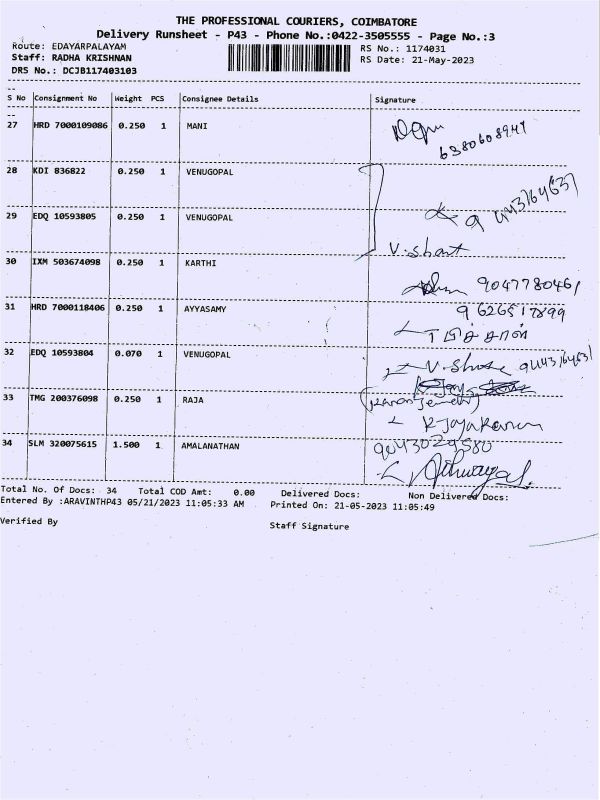 THE PROFESSIONAL COURIERS, COIMBATORE
Delivery Runsheet - P43 - Phone No.:0422-3505555 - Page No.:3
Route: EDAYARPALAYAM RS No.: 1174031
Staff: RADHA KRISHNAN RS Date: 21-May-2023
DRS No.: DCJB117403103
S No Consignment No Weight PCS Consignee Details Signature
27 HRD 7000109086 0.250 1 MANI
6380608947
28 KDI 836822 0.250 1 VENUGOPAL
29 EDQ 10593805 0.250 1 VENUGOPAL
9443164637
V. shant
30 IXM 503674098 0.250 1 KARTHI
9047780461
31 HRD 7000118406 0.250 1 AYYASAMY
9626517899
32 EDQ 10593804 0.070 1 VENUGOPAL
33 TMG 200376098 0.250 1 RAJA
34 SLM 320075615 1.500 1 AMALANATHAN
9043029580
Total No. Of Docs: 34 Total COD Amt: 0.00 Delivered Docs: Non Delivered Docs:
Entered By :ARAVINTHP43 05/21/2023 11:05:33 AM Printed On: 21-05-2023 11:05:49
Verified By
Staff Signature